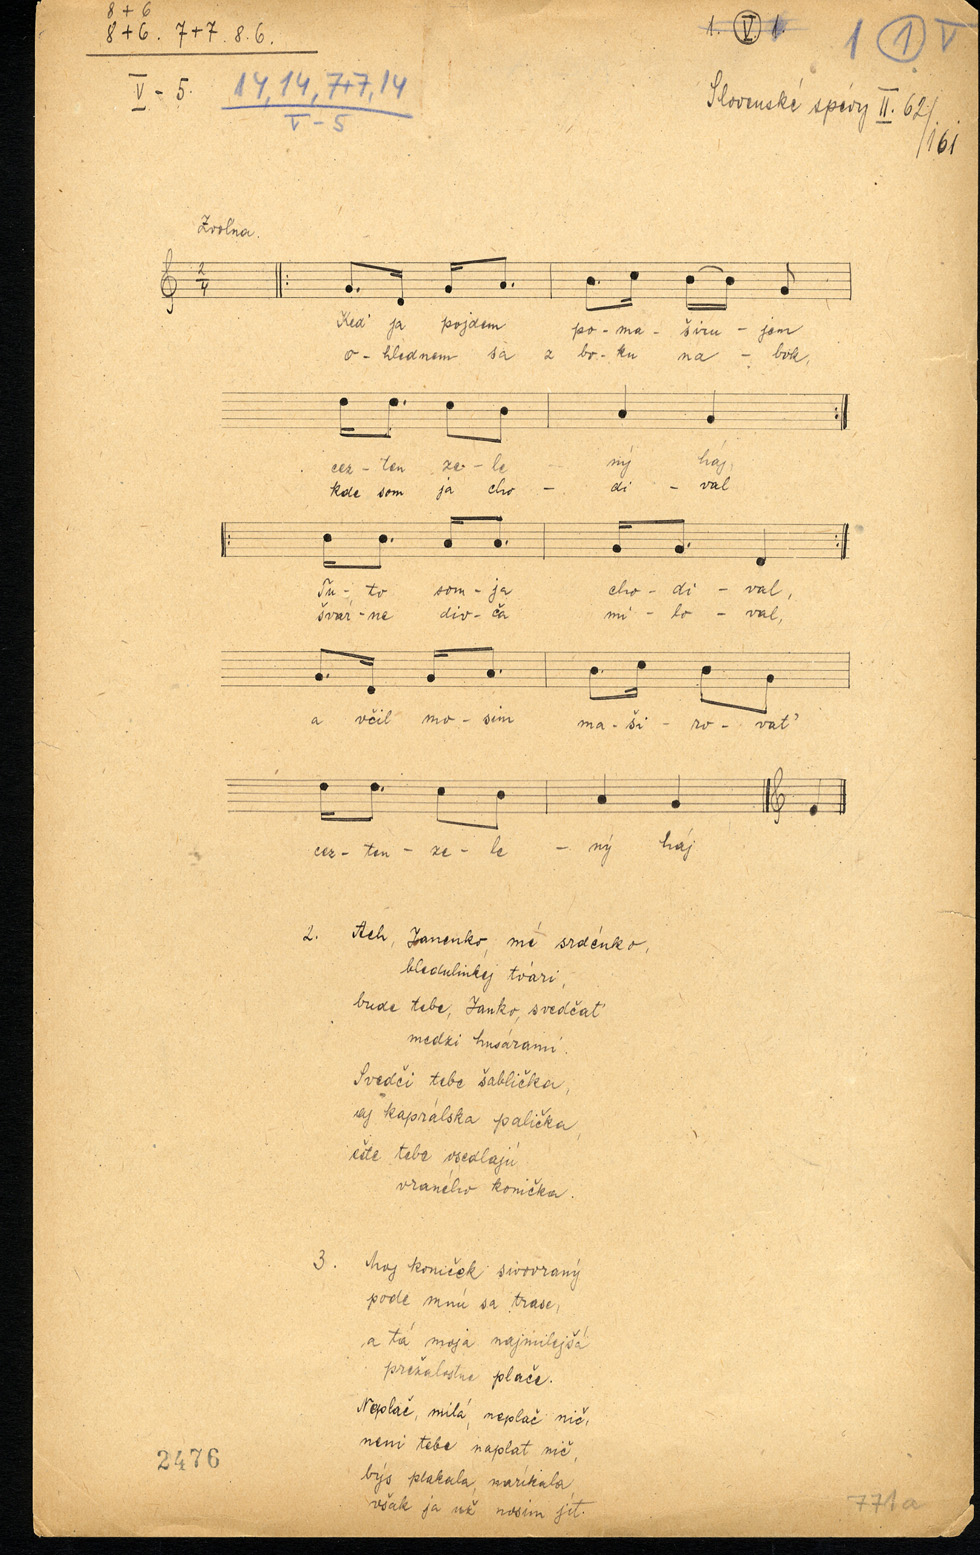 8 + 6
8+6. 7+7. 8.6.
1. V 1.
1 1 V
V - 5.
14, 14, 7+7, 14
V - 5
Slovenské spevy II. 62/
161
Zvolna.
2
4
Keď ja pojdem po - ma - širu - jem
o - hlednem sa z bo - ku na - bok,
cez - ten ze - le - ný háj,
kde som ja cho - di - val
Tu - to som - ja cho - di - val,
švar - ne div - ča mi - lo - val,
a včil mo - sim ma - ši - ro - vať
cez - ten - ze - le - ný háj
2. Ach, Janenko, mé srdénko,
bledulinkéj tvári,
bude tebe, Janko, svedčať
medzi husárami.
Svedčí tebe šablička,
aj kaprálska palička,
ešte tebe osedlajú
vraného konička.
3. Moj koniček sivovraný
pode mnú sa trase,
a tá moja najmilejšá
prežalostne plače.
Neplač, milá, neplač nič,
neni tebe naplat nič,
býs plakala, naríkala,
však ja už nosím jít.
2476
771a